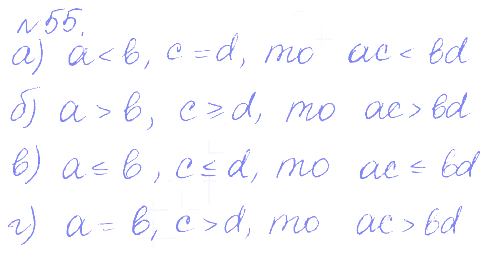 №55.
а) a < b, c = d, то ac < bd
б) a > b, c ≥ d, то ac > bd
в) a ≤ b, c ≤ d, то ac ≤ bd
г) a = b, c > d, то ac > bd